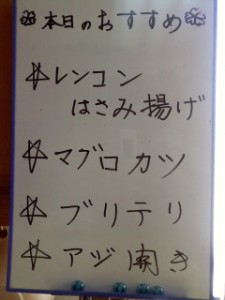 本日のおすすめ
☆レンコン
はさみ揚げ
☆マグロカツ
☆ブリテリ
☆アジ開き